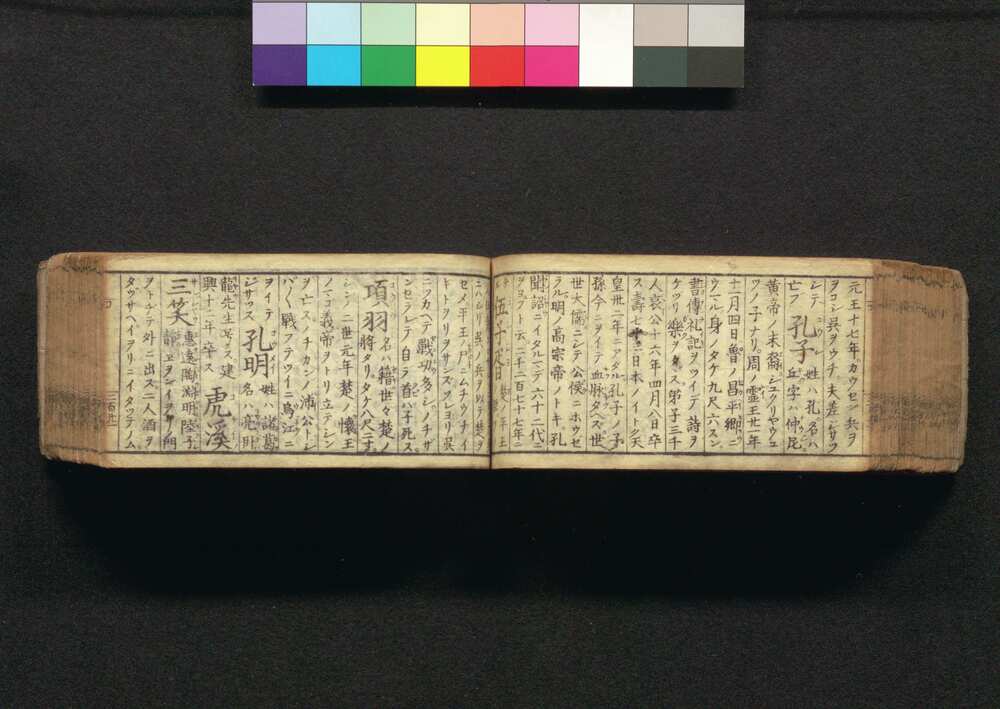 元王十七年カウセン兵ヲ
ヲコシ呉ヲウチ夫差ジサツ
レテ 姓ハ孔名ハ
亡フ 孔子 丘字ハ仲尼
黄帝ノ末裔シユクリヤウコ
ツノ子ナリ周ノ霊王廿一年
十一月四日魯ノ昌平郷ニ
ウマル身ノタケ九尺六スン
書傳礼記ヲツイデ詩ヲ
ケヅリ樂ヲ ス弟子三千
人哀公十六年四月八日卒
ス壽七十 日本ノイトク天
皇卅二年ニアタル孔子ノ子
孫今ニヲイテ血脉タヘス世
世大儒ニシテ公侯ニホウセ
ラル明ノ高宗帝ノトキ孔
聞詔ニイタルマテ六十二代ニ
ヲヨフト云二千二百七十七年
伍子胥 楚ノ平王
ニ ムリ呉ノ兵ヲ以テ楚ヲ
セメ平王ノ尸ニムチウチイ
キトヲリヲサンズソレヨリ呉
ニツカヘテ戰功多シノチサ
ンセラレテ自ラ首ハ子死ス
項羽 名ハ籍世々楚ノ
將タリタケ八尺二寸
シン ノ二世元年楚ノ懷王
ノマコ義帝ヲトリ立テシン
ヲ亡スノチカンノ沛公トシ
バ〱戰フテツイニ烏江ニ
ヲイテ 姓ハ諸葛
ジサツス 孔明 名ハ亮臥
龍先生 ス建
興十二年卒ス 虎溪
三笑 惠遠陶淵明陸
靜ヱヲンイクサノ門
ヲトムテ外ニ出ス二人酒ヲ
タツサヘヘイヲリニイタツテノム